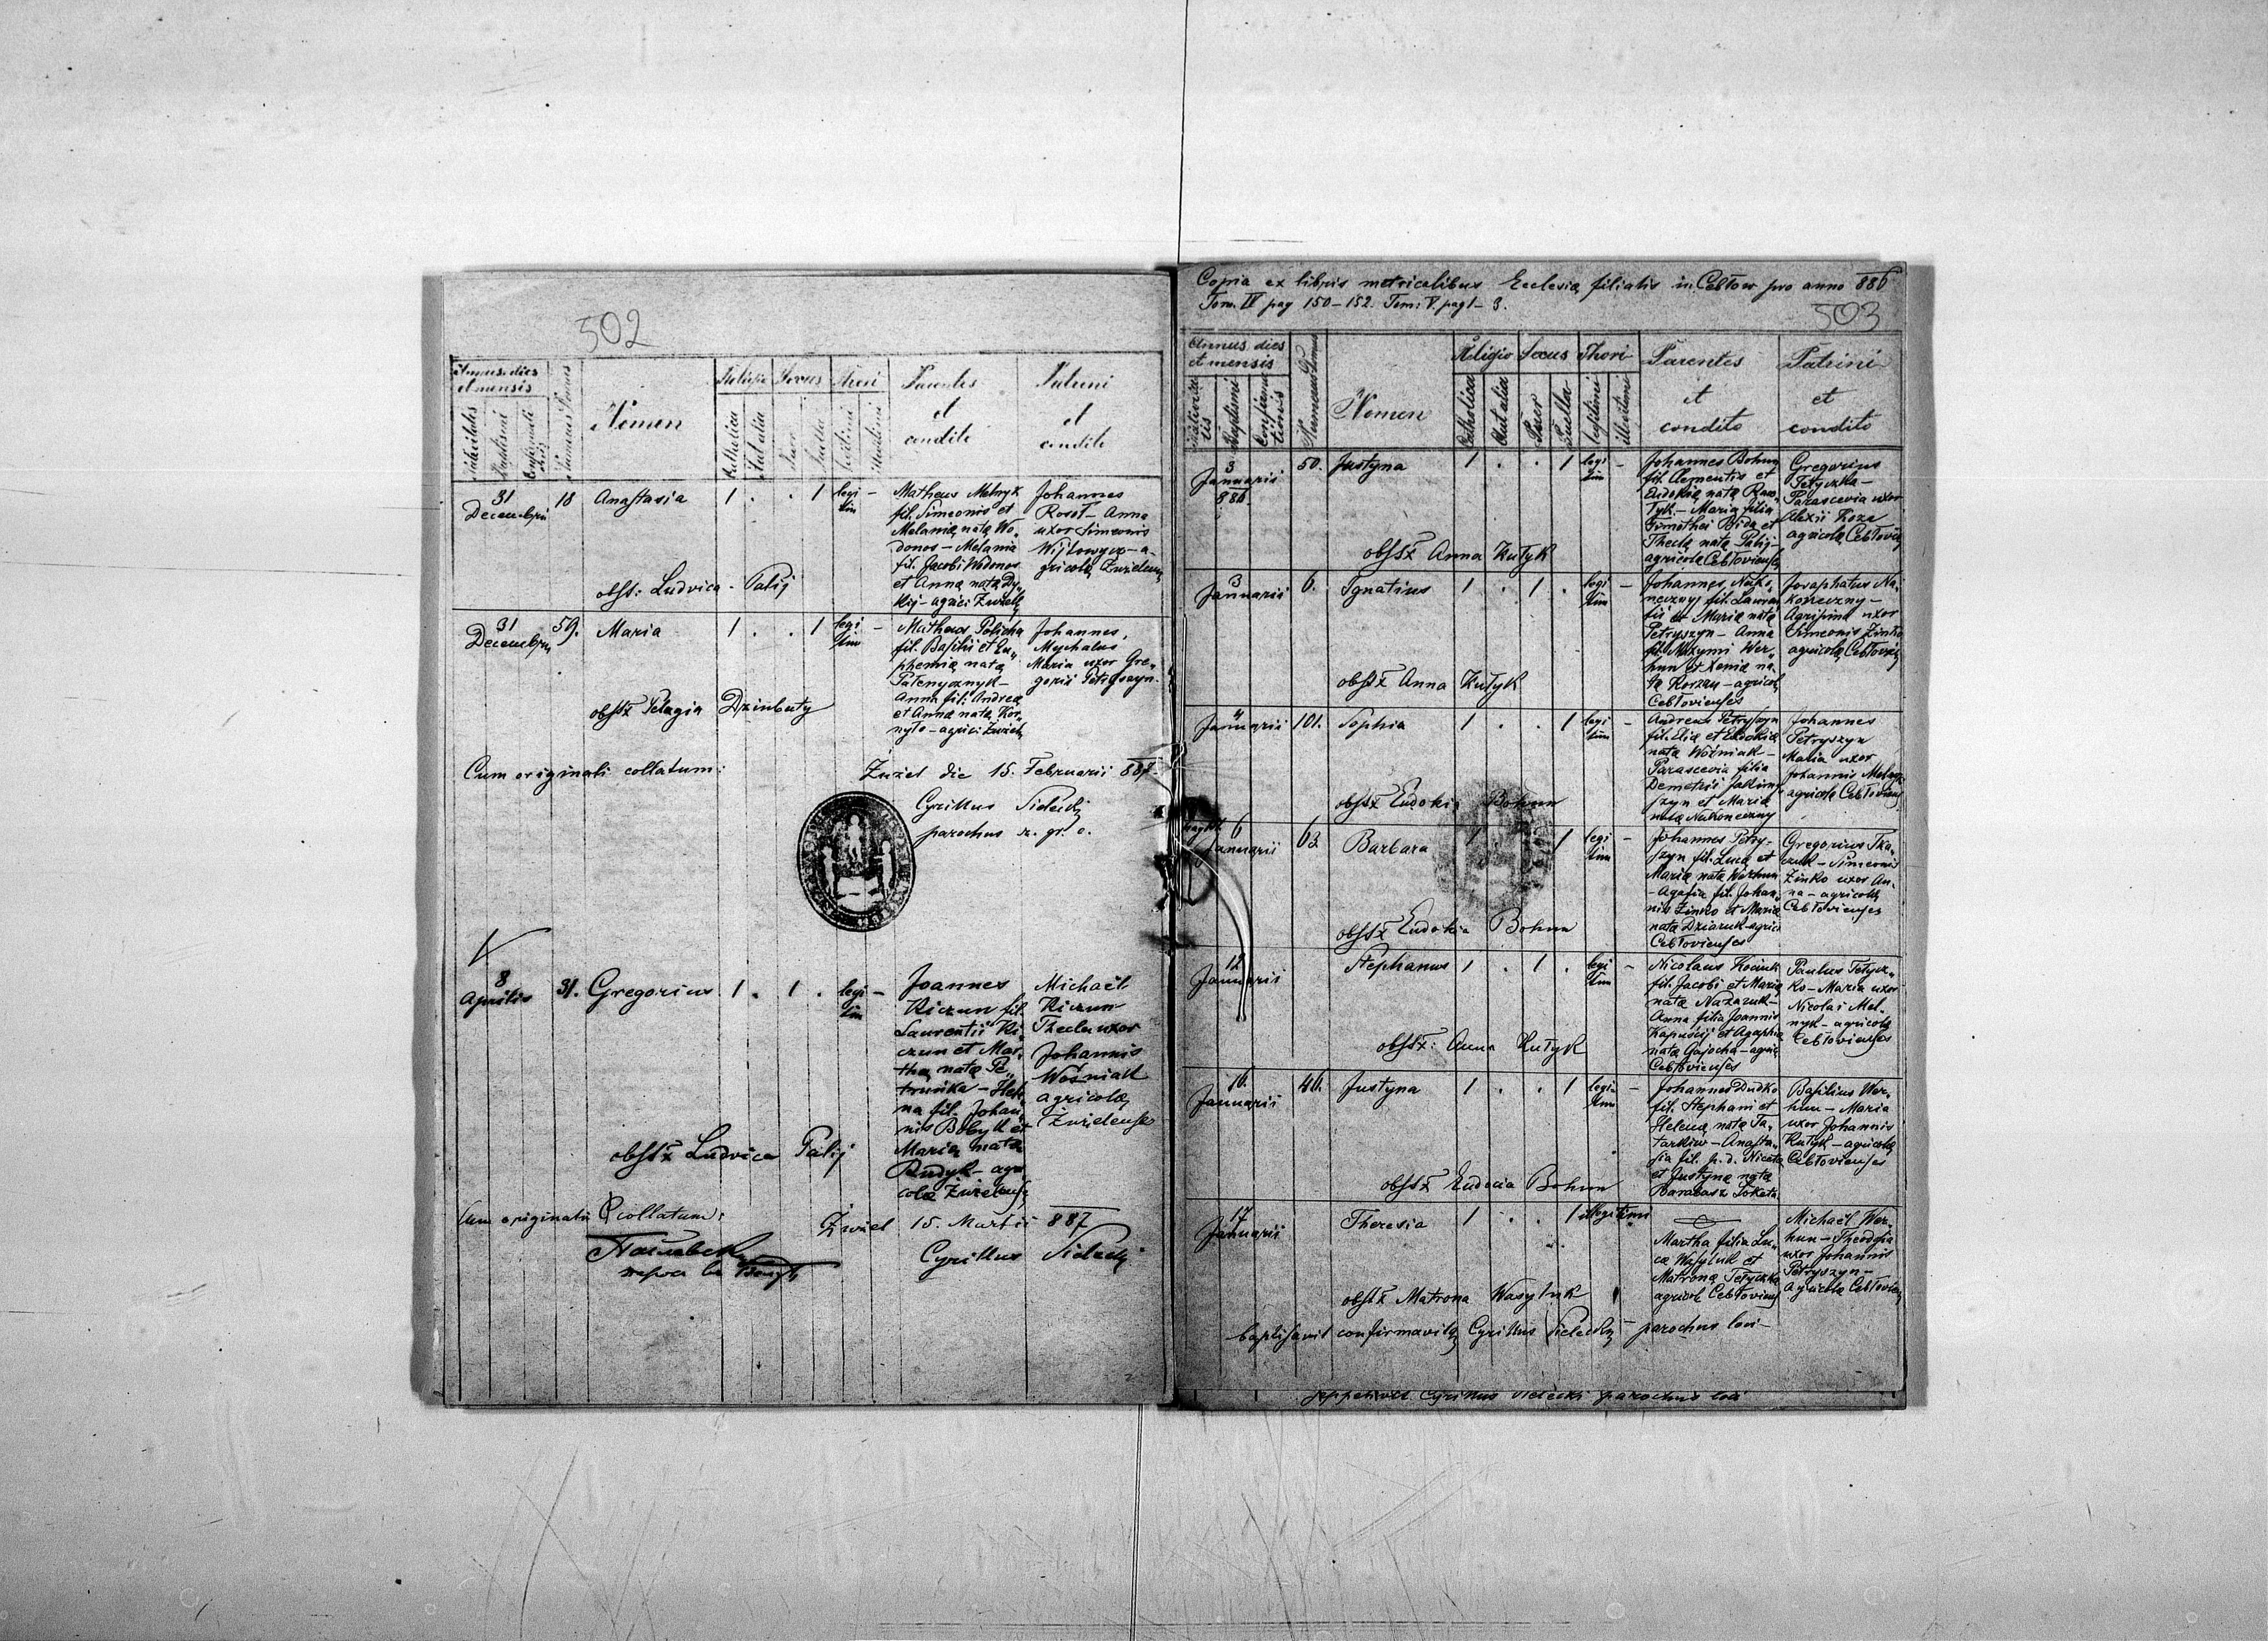 502
Annus dies
et mensis
Nativitatis
Baptismi
Numerus Domus
Nomen
Religio
Catholica
Aut alia
Sexus
Puer
Puella
Thori
legitimi
illegitimi
Parentes
et
conditio
Patrini
et
conditio
31
Decembris
18
Anastasia
1 . . 1
legi-
tim
Matheus Melnyk
fil. Simeonis et
Melaniæ nata Wo-
donos - Melania
fil. Jacobi Wodonos
et Anna nata
agric: Żużel
Johannes
Rosoł - Anna
uxor Simeonis
Wijtowycz - a-
gricolæ Żużelens
obst: Ludvica Palij
31
Decembris
59.
Maria
1 . . 1
legi-
tim
Matheus Policha
fil. Basilii et Eu-
phemia nata
Anna fil: Andreæ
et Anna nata Kor-
nyło - agric: Żużel
Johannes
Mychalus
Maria uxor Gre-
gorii Petryszyn
obstx Pelagia Dzinbuty
Cum originali collatum:
Żużel die 15. Februarii 887.
Cyrillus Sielecki
parochus r. gr. c.
8
Aprilis
31.
Gregorius
1 . 1 .
legi-
tim
Joannes
Kiczun fil.
Laurentii Ki-
czun et Mar-
tha nata Pe-
truńka - Hele-
na fil. Johan-
nis Bobyk et
Maria nata
Rudyk - agri-
colæ Żużelens
Michaël
Kiczun
Thecla uxor
Johannis
Woźniak
agricolæ
Żużelenses
obstx Ludvica Palij
Cum originali collatum:
Żużel 15. Martii 887
Cyrillus Sielecki
Copia ex libris metricalibus Ecclesiæ filialis in Cebłow pro anno 886
Tom. IV pag 150-152. Tom: V. pag 1-3.
503
Annus dies
et mensis
Nativita-
tis
Baptismi
Confirma-
tionis
Numerus Domus
Nomen
Religio
Catholica
Aut alia
Sexus
Puer
Puella
Thori
legitimi
illegitimi
Parentes
et
conditio
Patrini
et
conditio
3
Januarii
886
50.
Justyna
1 . . 1
legi-
tim
Johannes Bohun
fil. Clementis et
Eudokia nata
Maria filia
Timothei Bida et
Thecla nata Palij
agricolæ Cebłovienses
Gregorius
Tetyczka -
Parascevia uxor
Alexii Koza
agricolæ Cebłovien
obstx Anna Kutyk
3
Januarii
6.
Ignatius
1 . 1 .
legi-
tim
Johannes Nako-
neczny fil. Lauren-
tii et Maria nata
Petryszyn - Anna
fil. Maxymi Wer-
hun et Xenia na-
ta Korzan - agricolæ
Cebłovienses
Josaphatus Na-
koneczny -
Agripina uxor
Simeonis Zinko
agricolæ Cebłovien
obstx Anna Kutyk
4
Januarii
101.
Sophia
1 . . 1
legi-
tim
Andreas Petryszyn
fil. Eliæ et Eudokia
nata Woźniak -
Parascevia filia
Demetrii Jakim-
szyn et Maria
nata Nakoneczny
Johannes
Petryszyn
Maria uxor
Johannis Melnyk
agricolæ Cebłoviens
obstx Eudokia Bohun
6
Januarii
63
Barbara
1 . . 1
legi-
tim
Johannes Petry-
szyn fil. Lucæ et
Maria nata Werhun
- Agafia fil. Johan-
nis Zinko et Maria
nata Dziaruk - agric
Cebłovienses
Gregorius Tka-
czuk - Simeonis
Zinko uxor An-
na - agricolæ
Cebłovienses
obstx Eudokia Bohun
12
Januarii
Stephanus
1 . 1 .
legi-
tim
Nicolaus Kociuk
fil. Jacobi et Maria
nata Nazaruk -
Anna filia Joannis
Kapuścij et Agaphia
nata Gajocha - agric
Cebłovienses
Paulus Tetycz-
ko - Maria uxor
Nicolai Mel-
nyk - agricolæ
Cebłovienses
obstx: Anna Kutyk
16.
Januarii
46.
Justyna
1 . . 1
legi-
tim
Johannes Dudko
fil. Stephani et
Helena nata Ta-
tarkiw - Anasta-
sia fil. p. d. Nicetæ
et Justyna nata
Barabasz
Basilius Wer-
hun - Maria
uxor Johannis
Kutyk - agricolæ
Cebłovienses
obstx Eudocia Bohun
17
Januarii
Theresia
1 . . 1
illegitimi
Martha filia Lu-
cæ Wasyluk et
Matrona Tetyczka
agricolæ Cebłoviens
Michaël Wer-
hun - Theodosia
uxor Johannis
Petryszyn -
agricolæ Cebłovien
obstx Matrona Wasyluk
baptisavit confirmavitq Cyrillus Sielecki parochus loci -
Cyrillus Sielecki parochus loci